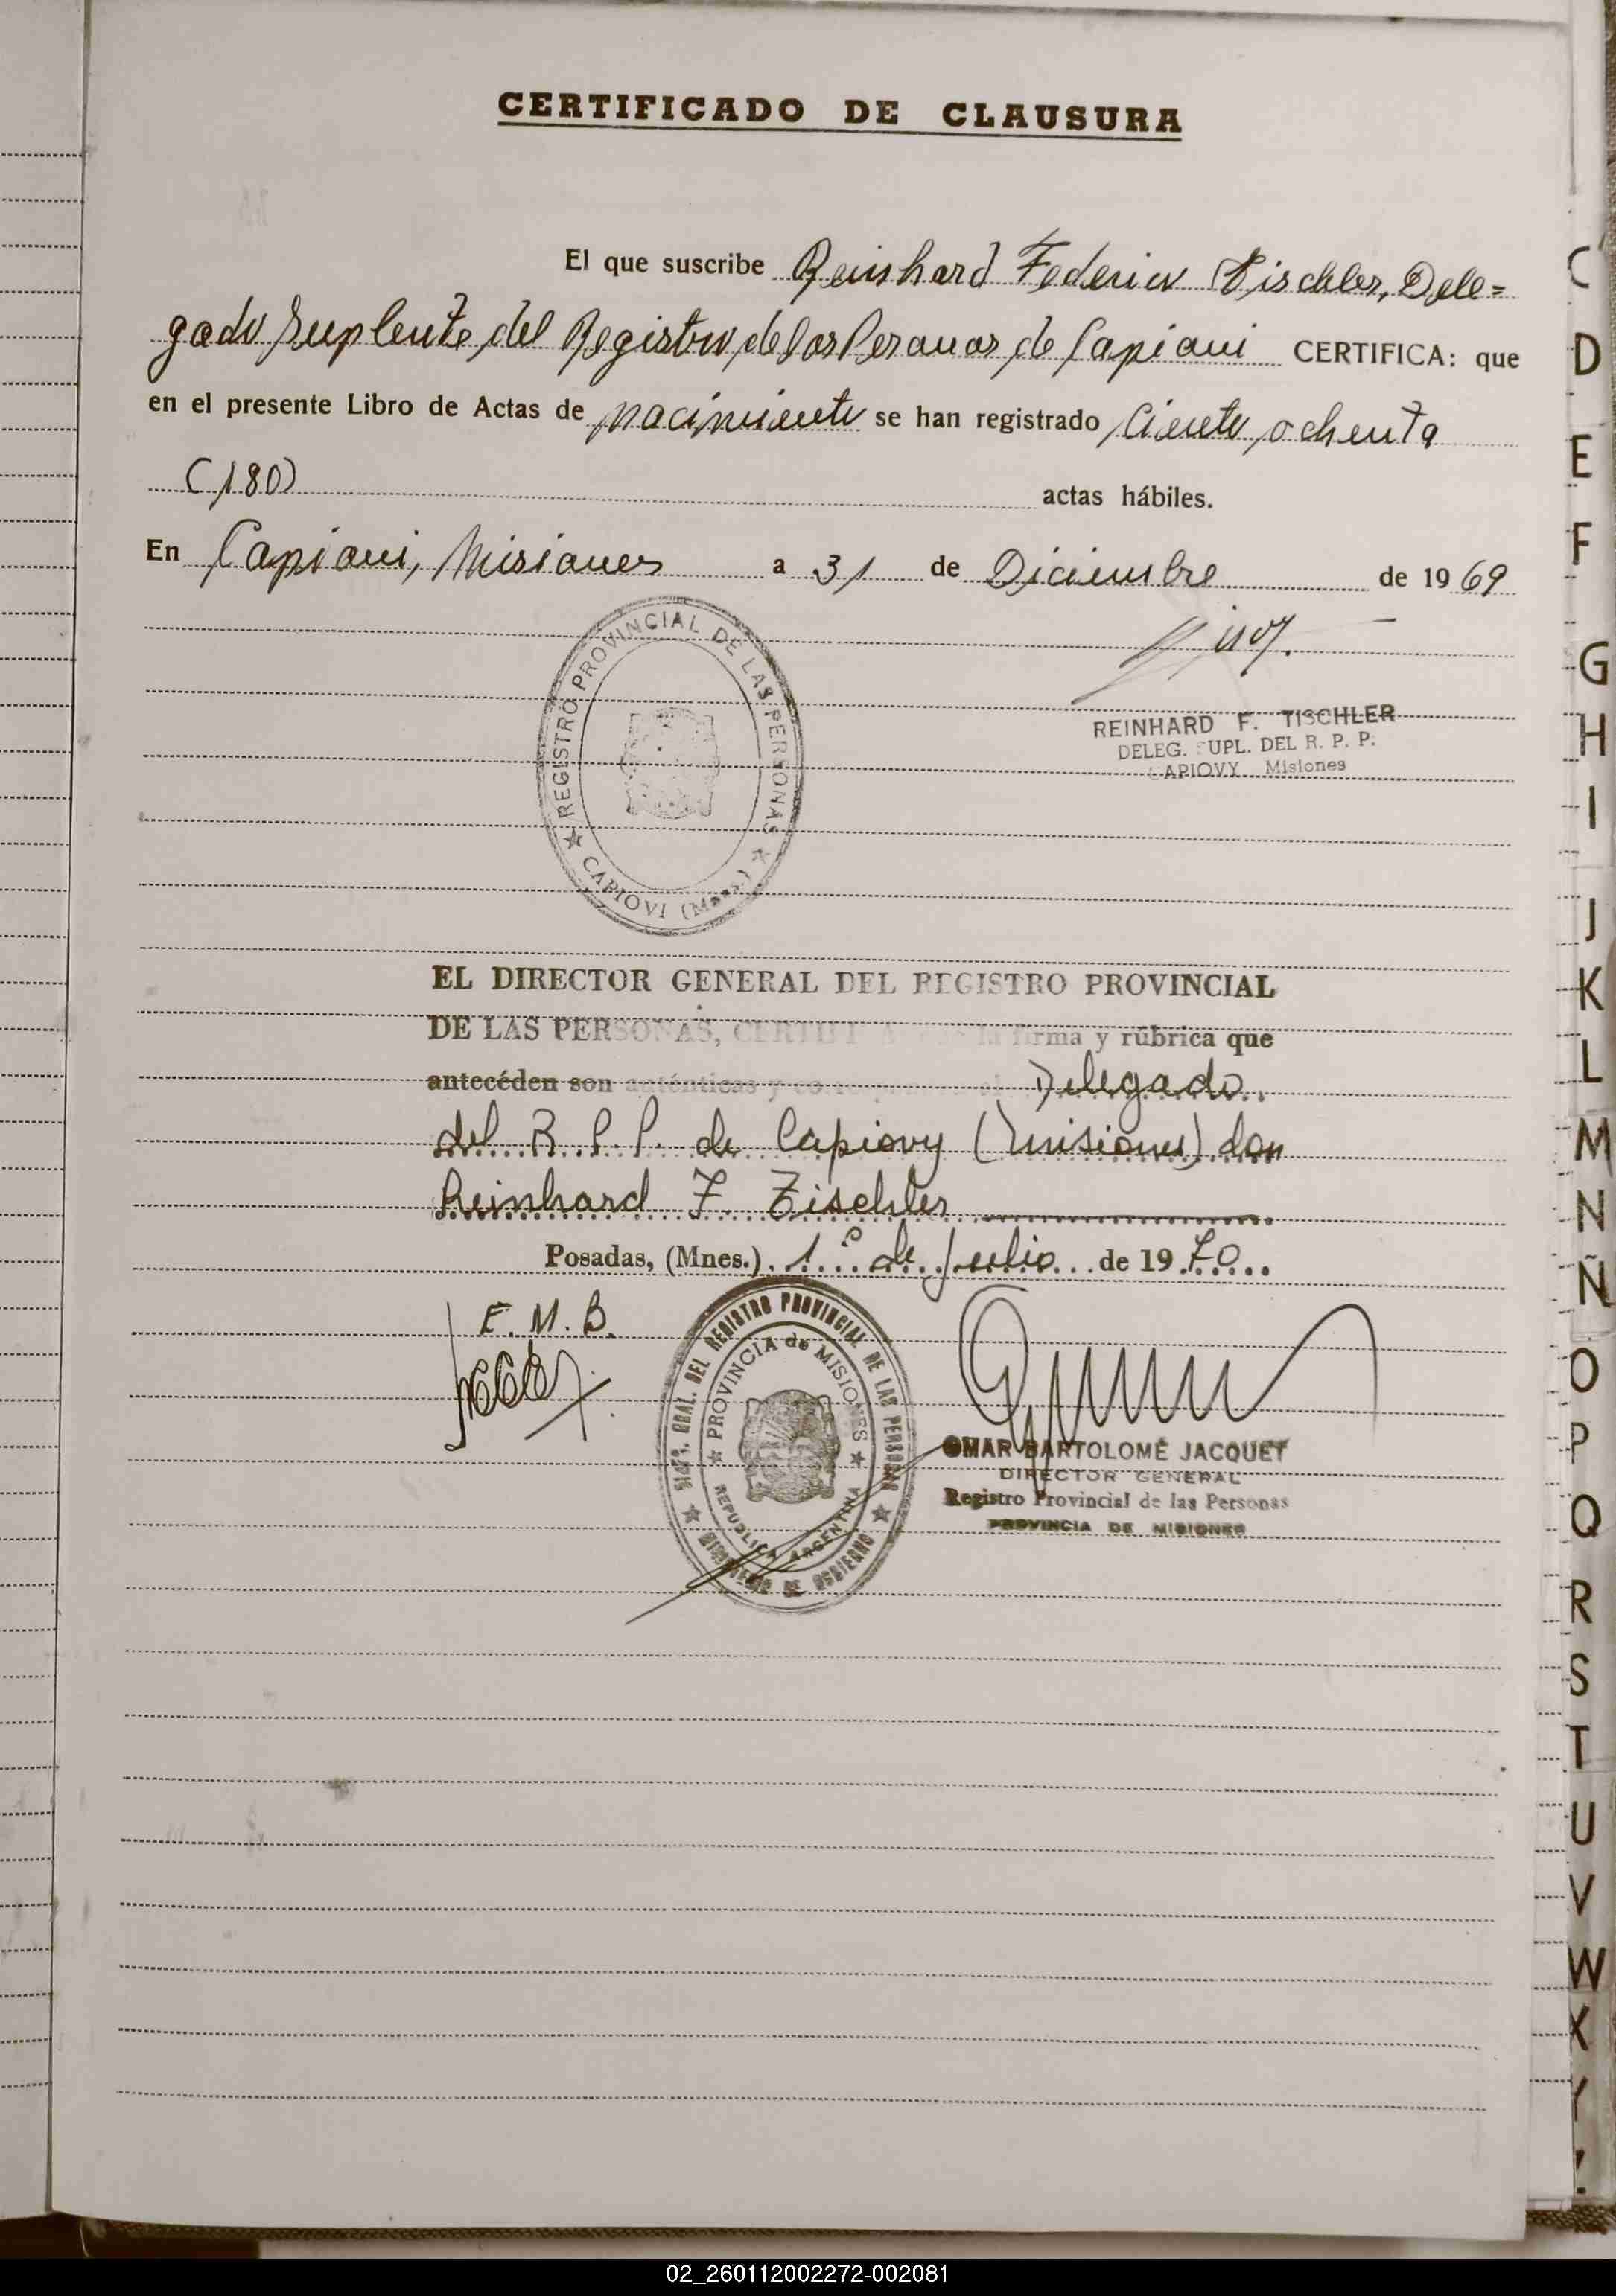 CERTIFICADO DE CLAUSURA
El que suscribe Reinhard Federico Tischler, Dele=
gado Suplente del Registro de las Personas de Capiovi CERTIFICA: que
en el presente Libro de Actas de nacimiento se han registrado Ciento ochenta
(180) actas hábiles.
En Capiovi, Misiones a 31 de Diciembre de 1969
REGISTRO PROVINCIAL DE LAS PERSONAS
CAPIOVI
REINHARD F. TISCHLER
DELEG. SUPL. DEL R. P. P.
CAPIOVY Misiones
EL DIRECTOR GENERAL DEL REGISTRO PROVINCIAL
DE LAS PERSONAS, CERTIFICA que la firma y rúbrica que
antecéden son auténticas y Delegado
del R.P.P. de Capiovy (Misiones) don
Reinhard F. Tischler
Posadas, (Mnes.) 1º de Julio de 1970
F. M. B.
GRAL. DEL REGISTRO PROVINCIAL DE LAS PERSONAS
PROVINCIA de MISIONES
REPUBLICA ARGENTINA
MINISTERIO DE GOBIERNO
OMAR BARTOLOMÉ JACQUET
DIRECTOR GENERAL
Registro Provincial de las Personas
PROVINCIA DE MISIONES
C
D
E
F
G
H
I
J
K
L
M
N
Ñ
O
P
Q
R
S
T
U
V
W
X
Y
02_260112002272-002081